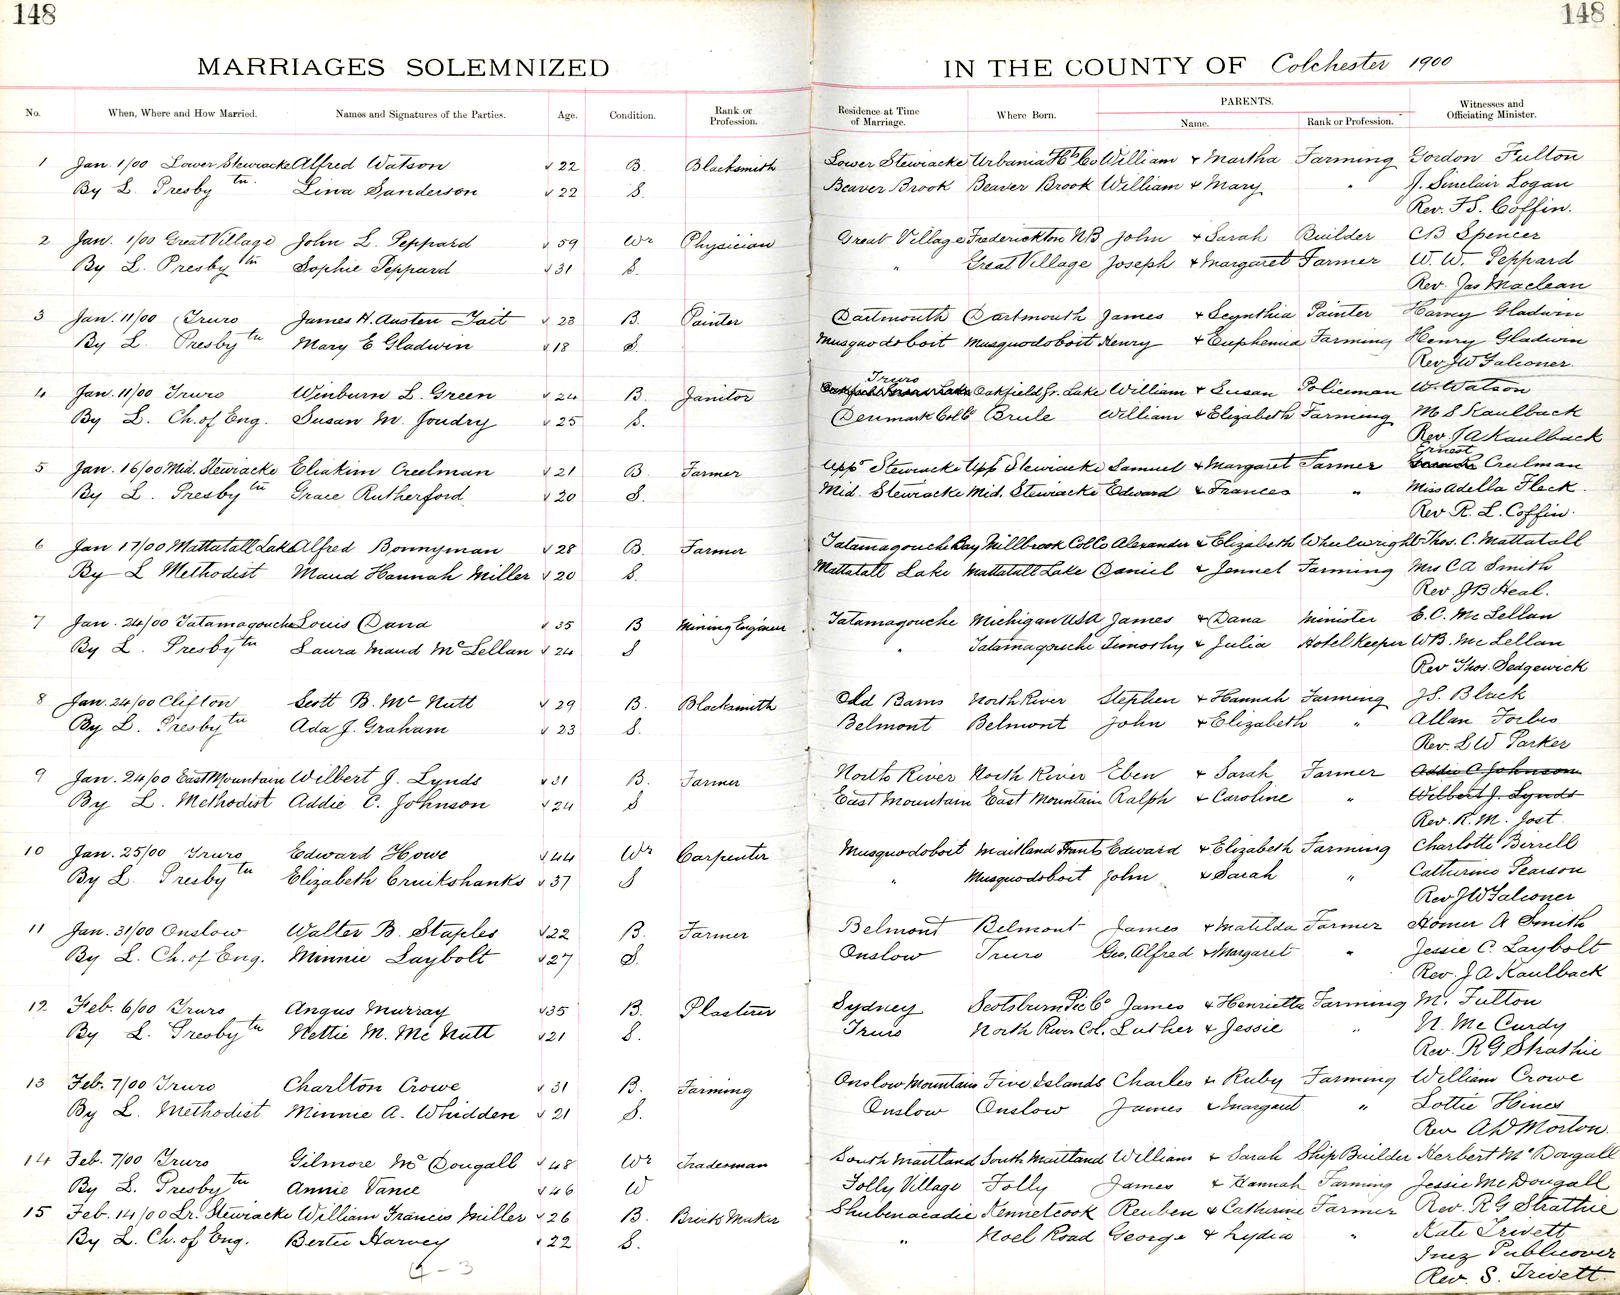 148
148
MARRIAGES SOLEMNIZED IN THE COUNTY OF Colchester 1900
No. When, Where and How Married. Names and Signatures of the Parties. Age. Condition. Rank or Profession. Residence at Time of Marriage. Where Born. PARENTS. Name. Rank or Profession. Witnesses and Officiating Minister.
1 Jan. 1/00 Lower Stewiacke Alfred Watson 22 B. Blacksmith Lower Stewiacke Urbania Hts Co William & Martha Farming Gordon Fulton
By L. Presby tn. Lina Sanderson 22 S. Beaver Brook Beaver Brook William & Mary " J. Sinclair Logan
Rev. F.S. Coffin.
2 Jan. 1/00 Great Village John L. Peppard 59 Wr Physician Great Village Fredericton NB John & Sarah Builder CB Spencer
By L. Presby tn Sophie Peppard 31 S. " Great Village Joseph & Margaret Farmer W. W. Peppard
Rev. Jas Maclean
3 Jan. 11/00 Truro James H. Austen Tait 23 B. Painter Dartmouth Dartmouth James & Scynthia Painter Harvey Gladwin
By L. Presby tn Mary E Gladwin 18 S. Musquodoboit Musquodoboit Henry & Euphemia Farming Henry Gladwin
Rev JW Falconer.
4 Jan. 11/00 Truro Winburn L. Green 24 B. Janitor Truro Oakfield Gr. Lake William & Susan Policeman W. Watson
By L. Ch. of Eng. Susan M. Joudry 25 S. Denmark Col Co Brule William & Elizabeth Farming M S Kaulback
Rev. J A Kaulback
5 Jan. 16/00 Mid. Stewiacke Eliakim Creelman 21 B. Farmer Uppr Stewiacke Uppr Stewiacke Samuel & Margaret Farmer Ernest Creelman
By L. Presby tn Grace Rutherford 20 S. Mid. Stewiacke Mid. Stewiacke Edward & Frances " Miss Adella Fleck
Rev. R. L. Coffin.
6 Jan 17/00 Mattatall Lake Alfred Bonnyman 28 B. Farmer Tatamagouche Bay Millbrook Col Co Alexander & Elizabeth Wheelwright Thos. C. Mattatall
By L Methodist Maud Hannah Miller 20 S. Mattatall Lake Mattatall Lake Daniel & Jennet Farming Mrs C A Smith
Rev. J B Heal.
7 Jan. 24/00 Tatamagouche Louis Dana 35 B Mining Engineer Tatamagouche Michigan USA James & Dana Minister E. C. McLellan
By L. Presby tn Laura Maud McLellan 24 S " Tatamagouche Timothy & Julia Hotel Keeper WB. McLellan
Rev Thos. Sedgewick
8 Jan. 24/00 Clifton Scott B. McNutt 29 B. Blacksmith Old Barns North River Stephen & Hannah Farming J S. Black
By L. Presby tn Ada J. Graham 23 S. Belmont Belmont John & Elizabeth " Allan Forbes
Rev. L W Parker
9 Jan. 24/00 East Mountain Wilbert J. Lynds 31 B. Farmer North River North River Eben & Sarah Farmer Addie C Johnson
By L. Methodist Addie C. Johnson 24 S East Mountain East Mountain Ralph & Caroline " Wilbert J. Lynds
Rev. R. M. Jost
10 Jan. 25/00 Truro Edward Howe 44 Wr Carpenter Musquodoboit Maitland Hants Edward & Elizabeth Farming Charlotte Birrell
By L. Presby tn Elizabeth Cruikshanks 37 S " Musquodoboit John & Sarah " Catherine Pearson
Rev JW Falconer
11 Jan. 31/00 Onslow Walter B. Staples 22 B. Farmer Belmont Belmont James & Matilda Farmer Homer A Smith
By L. Ch. of Eng. Minnie Laybolt 27 S. Onslow Truro Geo. Alfred & Margaret " Jessie C. Laybolt
Rev. J A Kaulback
12 Feb. 6/00 Truro Angus Murray 35 B. Plasterer Sydney Scotsburn Pic Co James & Henrietta Farming M. Fulton
By L. Presby tn Nettie M. McNutt 21 S. Truro North River Col. Luther & Jessie " N. McCurdy
Rev. R G Strathie
13 Feb. 7/00 Truro Charlton Crowe 31 B. Farming Onslow Mountain Five Islands Charles & Ruby Farming William Crowe
By L. Methodist Minnie A. Whidden 21 S. Onslow Onslow James & Margaret " Lottie Hines
Rev A W Morton.
14 Feb. 7/00 Truro Gilmore McDougall 48 Wr Tradesman South Maitland South Maitland William & Sarah Ship Builder Herbert McDougall
By L. Presby tn Annie Vance 46 W Folly Village Folly James & Hannah Farming Jessie McDougall
15 Feb. 14/00 Lr. Stewiacke William Francis Miller 26 B. Brick Maker Shubenacadie Kennetcook Reuben & Catherine Farmer Rev. R G Strathie
By L. Ch. of Eng. Bertie Harvey 22 S. " Noel Road George & Lydia " Kate Trivett
Inez Publicover
Rev. S. Trivett.
4-3